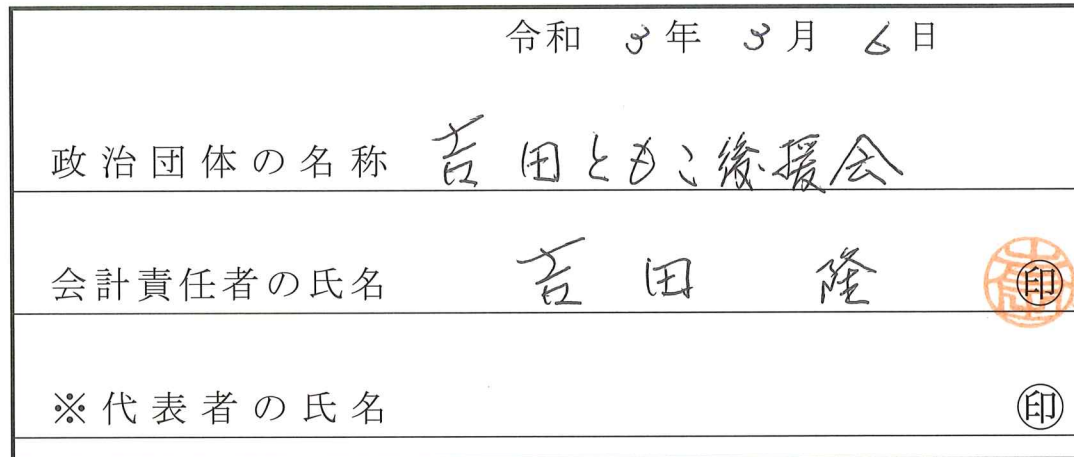 令和 3年 3月 6日
政治団体の名称 吉田ともこ後援会
会計責任者の氏名 吉田 隆 印
※代表者の氏名 印